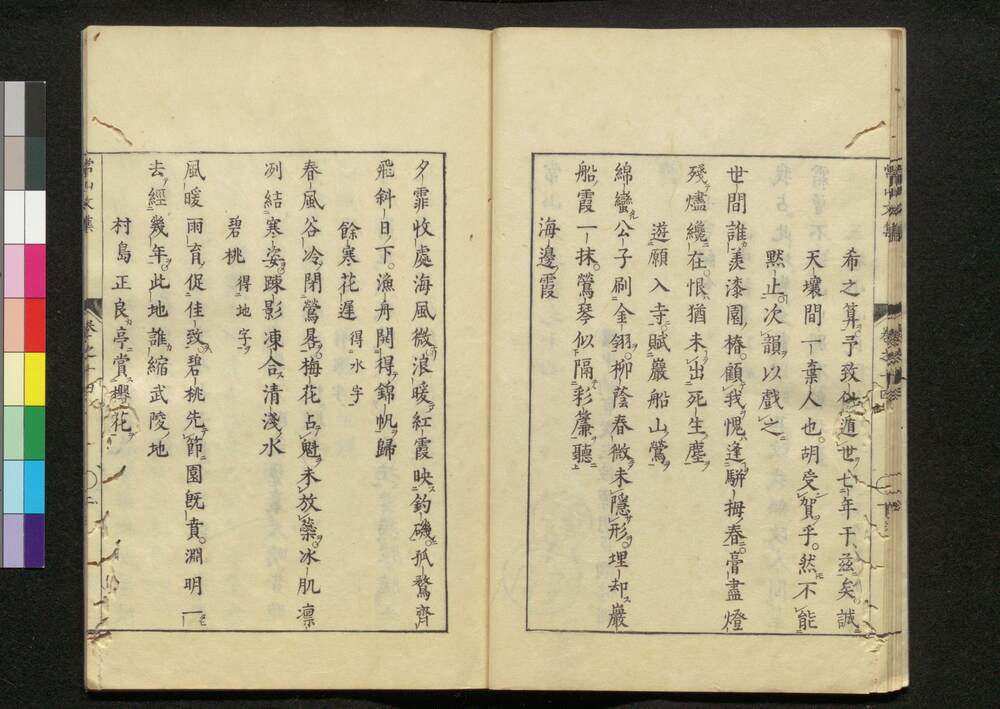 希之算予致仕遁世七年于玆矣誠
天壤間一棄人也胡受賀乎然不能
黙止次韻以戲之
世間誰羨漆園椿顧我愧逢駢拇春膏盡燈
殘燼纔在恨猶未出死生塵
遊願入寺賦巖船山鶯
綿蠻公子刷金翎柳蔭春微未隱形埋却巖
船霞一抹鶯琴似隔彩簾聽
海邊霞
夕霏收處海風微浪暖紅霞映釣磯孤鶩齊
飛斜日下漁舟閖得錦帆歸
餘寒花遲 得水字
春風谷冷閉鶯晷梅花占魁未放蘂冰肌凛
冽結寒姿踈影凍合清淺水
碧桃 得地字
風暖雨育促佳致碧桃先節園既賁淵明一
去經幾年此地誰縮武陵地
村島正良亭賞櫻花
常山文集
卷之十四